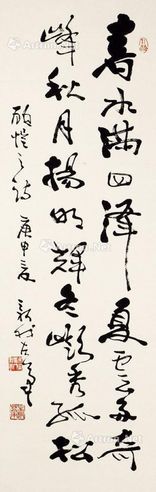 春水满四泽夏云多奇
峰秋月扬明辉冬岭秀孤松
顾恺之诗庚申夏